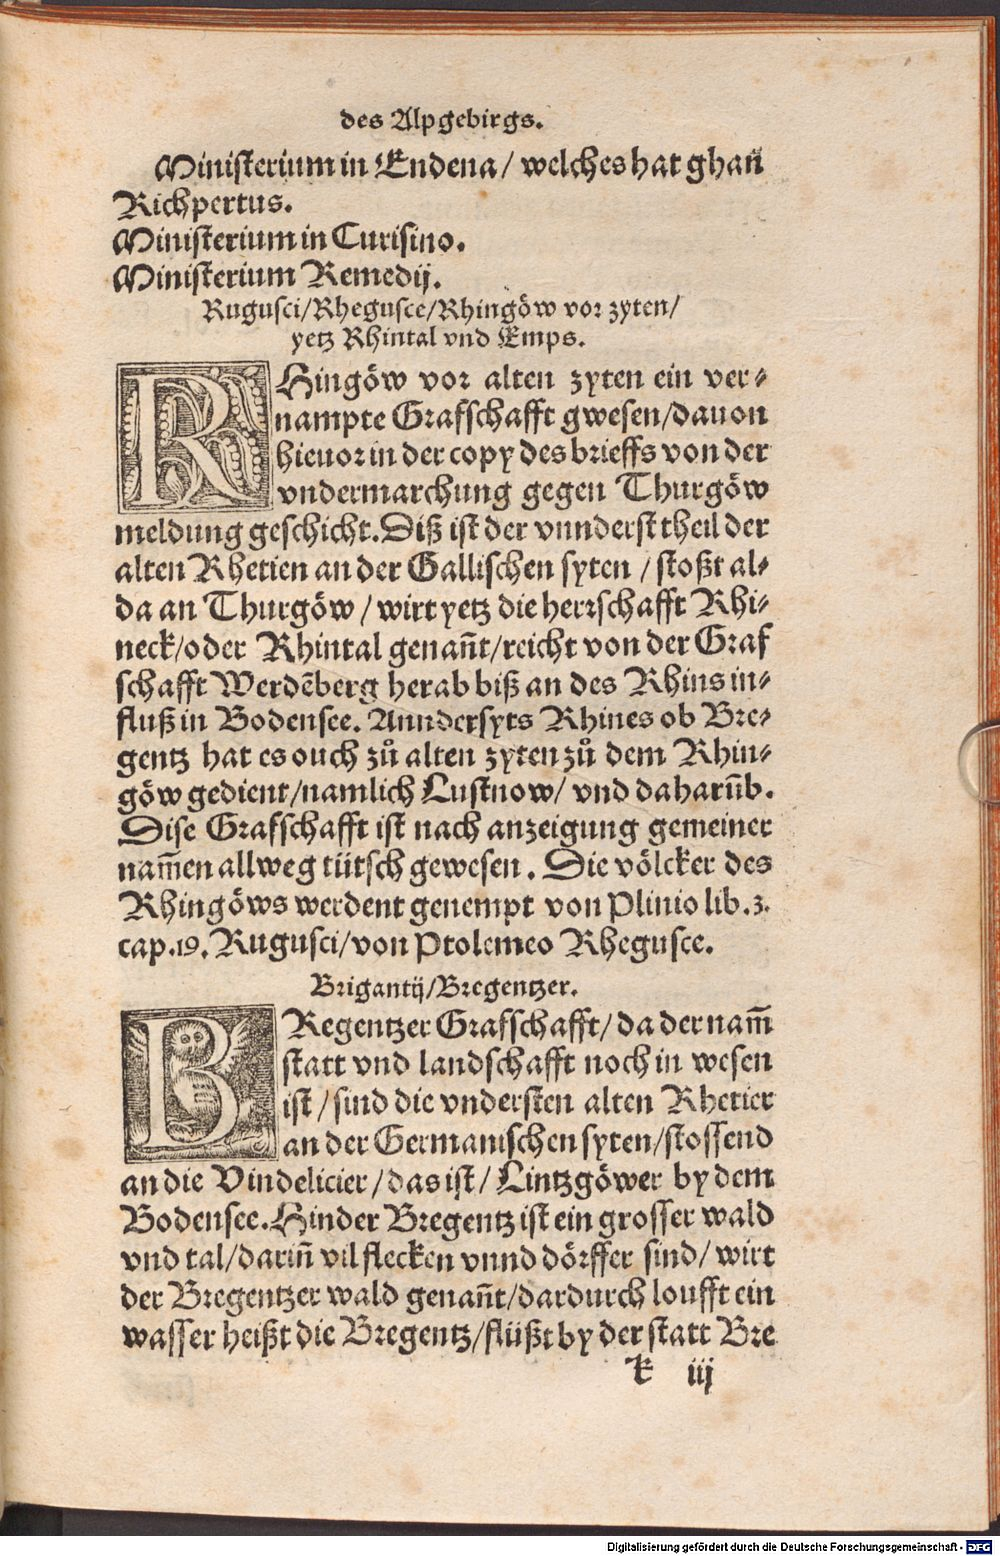 des Alpgebirgs.
Ministerium in Endena / welches hat ghan̄
Richpertus.
Ministerium in Curisino.
Ministerium Remedij.
Rugusci/Rhegusce/Rhingöw vor zyten/
yetz Rhintal vnd Emps.
RHingöw vor alten zyten ein ver-
nampte Grafschafft gwesen/dauon
hieuor in der copy des brieffs von der
vndermarchung gegen Thurgöw
meldung geschicht. Diß ist der vnnderst theil der
alten Rhetien an der Gallischen syten / stoßt al-
da an Thurgöw / wirt yetz die herrschafft Rhi-
neck/oder Rhintal genañt/reicht von der Graf
schafft Werdēberg herab biß an des Rhins in-
fluß in Bodensee. Anndersyts Rhines ob Bre-
gentz hat es ouch zů alten zyten zů dem Rhin-
göw gedient/namlich Lustnow/ vnd daharūb.
Dise Grafschafft ist nach anzeigung gemeiner
nam̄en allweg tütsch gewesen. Die völcker des
Rhingöws werdent genempt von Plinio lib.3.
cap.19. Rugusci/von Ptolemeo Rhegusce.
Brigantij/Bregentzer.
BRegentzer Grafschafft/ da der nam̄
statt vnd landschafft noch in wesen
ist / sind die vndersten alten Rhetier
an der Germanischen syten/stossend
an die Vindelicier/das ist/ Lintzgöwer by dem
Bodensee. Hinder Bregentz ist ein grosser wald
vnd tal/darin̄ vil flecken vnnd dörffer sind/ wirt
der Bregentzer wald genañt/dardurch loufft ein
wasser heißt die Bregentz/flüßt by der statt Bre
k iij
Digitalisierung gefördert durch die Deutsche Forschungsgemeinschaft - DFG